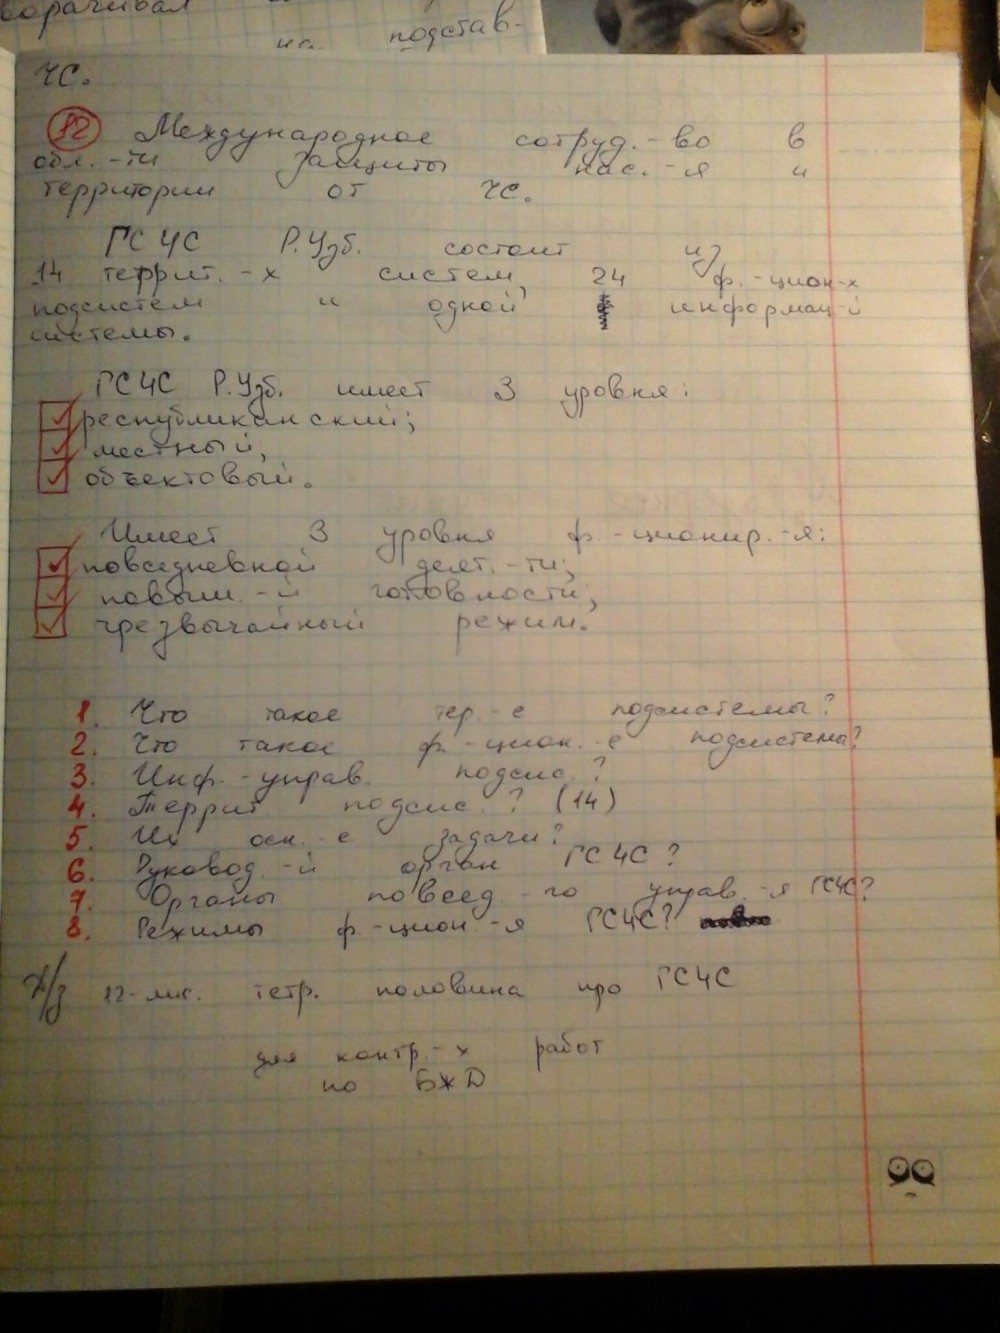 на подстав-
ЧС.
12 Международное сотруд.-во в
обл.-ти защиты нас.-я и
территории от ЧС.
ГСЧС Р.Узб. состоит из
14 террит.-х систем, 24 ф.-цион-х
подсистем и одной информац-й
системы.
ГСЧС Р.Узб. имеет 3 уровня:
республиканский;
местный;
объектовый.
Имеет 3 уровня ф.-ционир.-я:
повседневной деят.-ти;
повыш.-й готовности;
чрезвычайный режим.
1. Что такое тер.-е подсистемы?
2. Что такое ф.-цион.-е подсистемы?
3. Инф.-управ. подсис.?
4. Террит. подсис.? (14)
5. Их осн.-е задачи?
6. Руковод.-й орган ГСЧС?
7. Органы повсед.-го управ.-я ГСЧС?
8. Режимы ф.-цион.-я ГСЧС?
Х/з 12-лис. тетр. половина про ГСЧС
для контр.-х работ
по БЖD